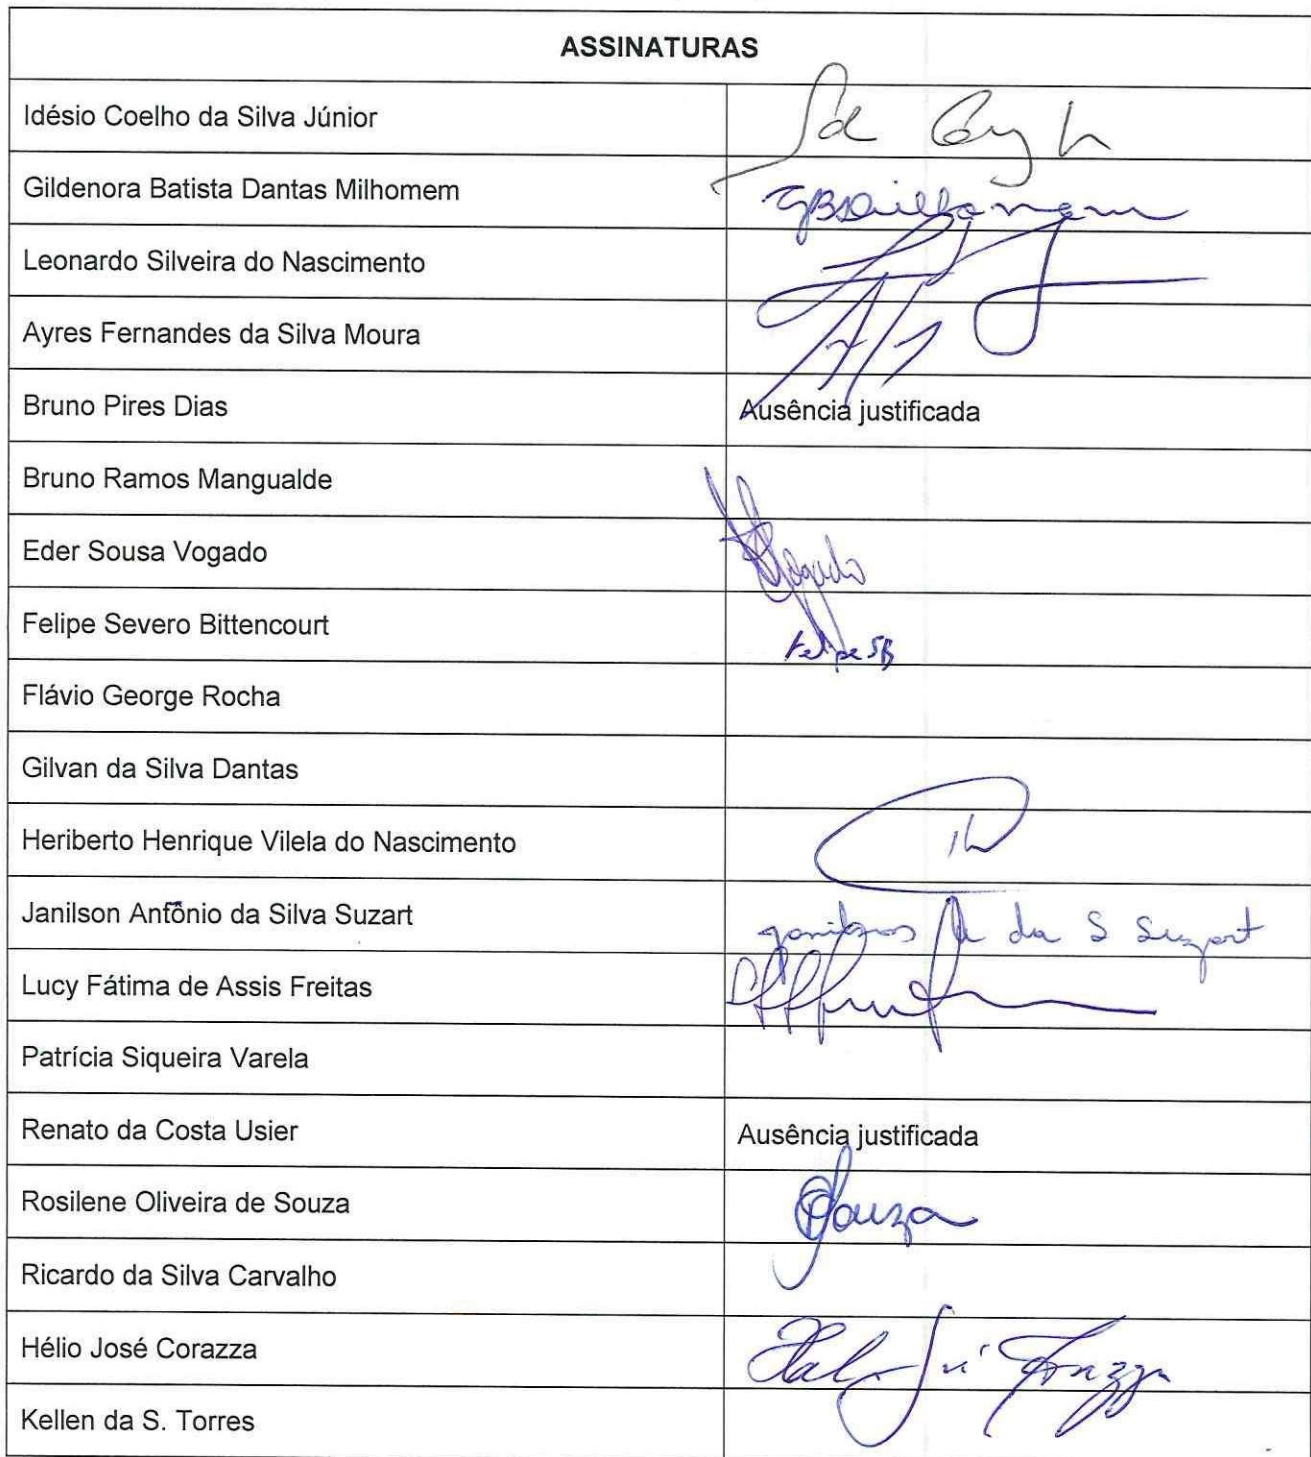 ASSINATURAS
Idésio Coelho da Silva Júnior
Gildenora Batista Dantas Milhomem
Leonardo Silveira do Nascimento
Ayres Fernandes da Silva Moura
Bruno Pires Dias Ausência justificada
Bruno Ramos Mangualde
Eder Sousa Vogado Vogado
Felipe Severo Bittencourt Felipe SB
Flávio George Rocha
Gilvan da Silva Dantas
Heriberto Henrique Vilela do Nascimento
Janilson Antônio da Silva Suzart Janilson A da S Suzart
Lucy Fátima de Assis Freitas
Patrícia Siqueira Varela
Renato da Costa Usier Ausência justificada
Rosilene Oliveira de Souza Souza
Ricardo da Silva Carvalho
Hélio José Corazza
Kellen da S. Torres